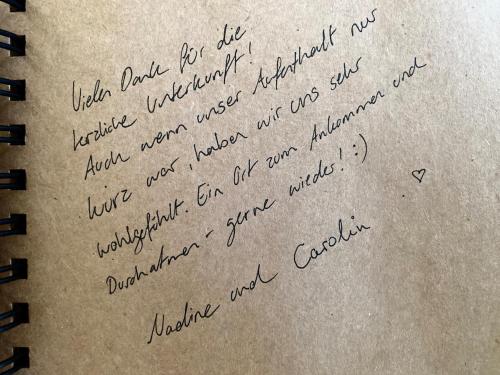 Vielen Dank für die
herzliche Unterkunft!
Auch wenn unser Aufenthalt nur
kurz war, haben wir uns sehr
wohlgefühlt. Ein Ort zum Ankommen und
Durchatmen - gerne wieder! :)
♡
Nadine und Carolin